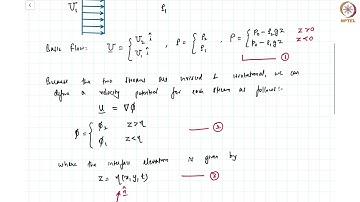 U₁ ρ₁
NPTEL
Basic Flow: U = { U₂ î , ρ = { ρ₂ , P = { P₀ - ρ₂gz z>0
U₁ î ρ₁ P₀ - ρ₁gz z<0
①
Because the two streams are inviscid & irrotational, we can
define a velocity potential for each stream as follows:-
u = ∇φ
φ = { φ₂ z>η
φ₁ z<η — ②
where the interface elevation is given by
z = η(x,y,t) — ③